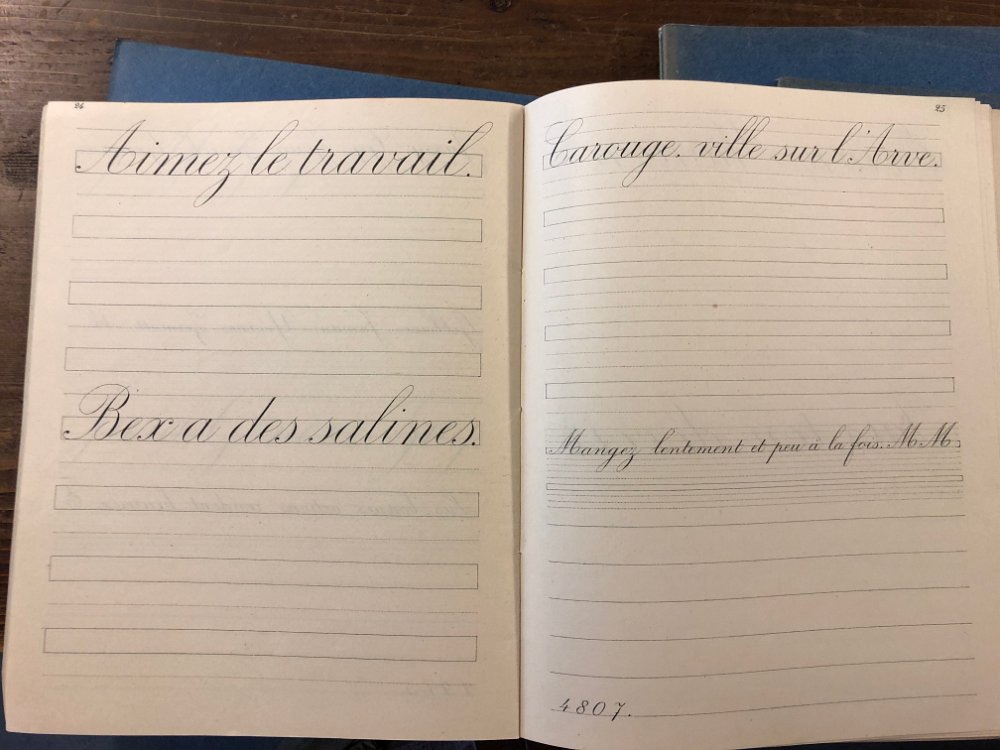 24
Aimez le travail.
Bex a des salines.
25
Carouge. ville sur l'Arve.
Mangez lentement et peu à la fois. M M
4807.